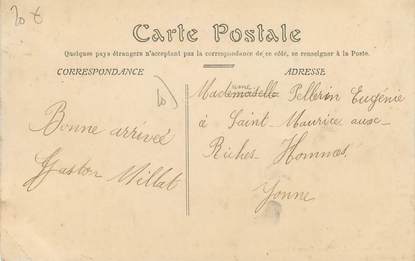 20 €
Carte Postale
Quelques pays étrangers n'acceptant pas la correspondance de ce côté, se renseigner à la Poste.
CORRESPONDANCE
ADRESSE
Bonne arrivée
Gaston Millat
Madame Pellerin Eugénie
à Saint-Maurice aux
Riches-Hommes
Yonne